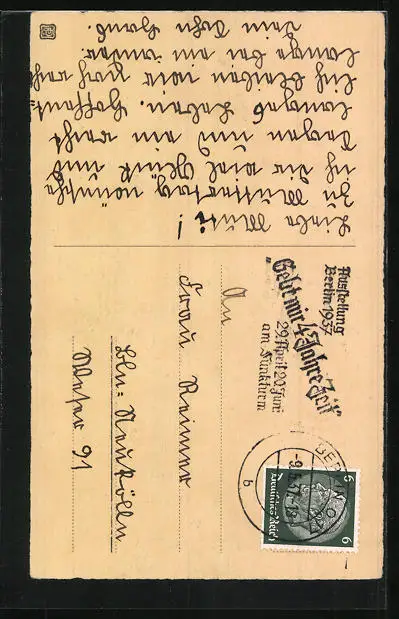 Liebe Mutti!
Zu Muttertag wünsche
ich dir viel Glück und
Segen und ein recht
langes Leben. Hoffent=
lich bleiben wir noch recht
lange bei ein ander.
Dein Sohn Hans.
Ausstellung
Berlin 1937
"Gebt mir 4 Jahre Zeit"
29. April-20. Juni
am Funkturm
BERLIN O
-9.5.37.-18
b
Deutsches Reich
6
6
An
Frau Reimer
Bln=Neukölln
Weser 91